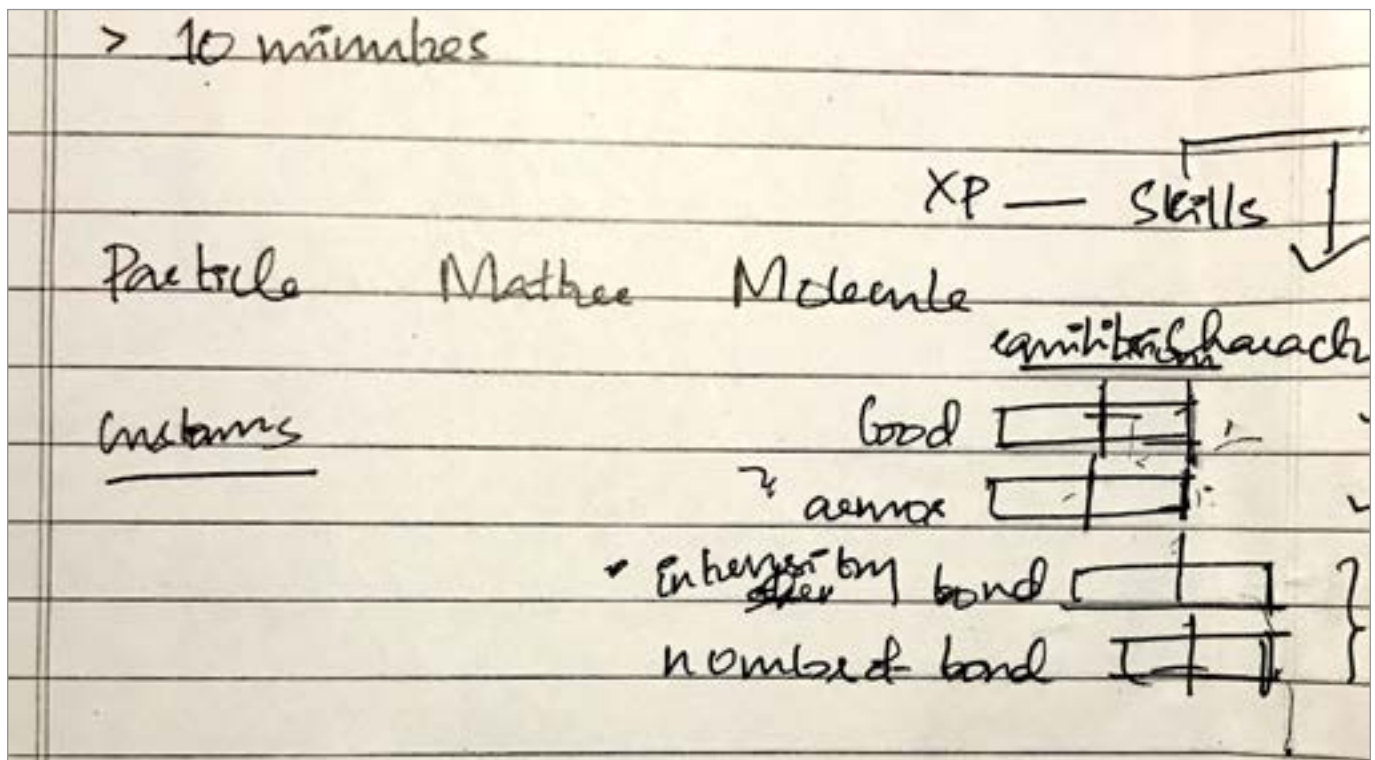 > 10 minutes
XP — Skills
Particle Matter Molecule
equilibrium Charact
Customs
Good
armor
bond
nombre of bond